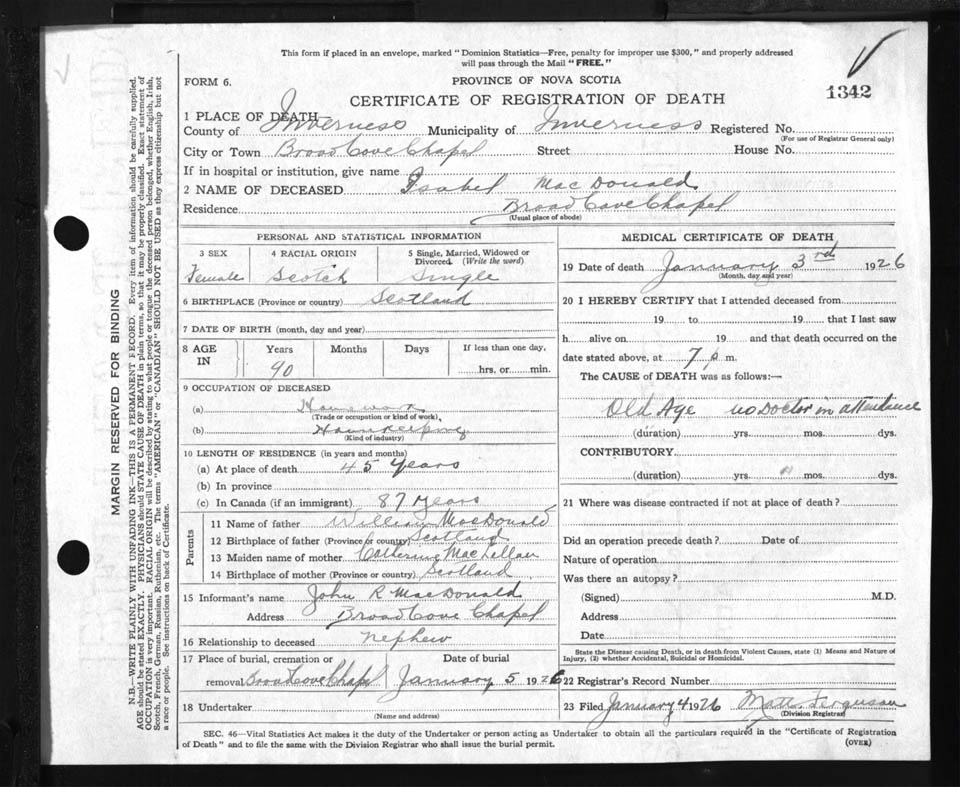 This form if placed in an envelope, marked "Dominion Statistics—Free, penalty for improper use $300," and properly addressed
will pass through the Mail "FREE."
FORM 6.
PROVINCE OF NOVA SCOTIA
1342
CERTIFICATE OF REGISTRATION OF DEATH
1 PLACE OF DEATH
County of Inverness Municipality of Inverness Registered No.
(For use of Registrar General only)
City or Town Broad Cove Chapel Street House No.
If in hospital or institution, give name
2 NAME OF DECEASED Isabel MacDonald
Residence Broad Cove Chapel
(Usual place of abode)
PERSONAL AND STATISTICAL INFORMATION
3 SEX 4 RACIAL ORIGIN 5 Single, Married, Widowed or
Divorced (Write the word)
Female Scotch Single
6 BIRTHPLACE (Province or country) Scotland
7 DATE OF BIRTH (month, day and year)
8 AGE IN Years Months Days If less than one day,
90 hrs. or min.
9 OCCUPATION OF DECEASED
(a) Housework
(Trade or occupation or kind of work)
(b) Housekeeping
(Kind of industry)
10 LENGTH OF RESIDENCE (in years and months)
(a) At place of death 45 years
(b) In province
(c) In Canada (if an immigrant) 87 years
Parents
11 Name of father William MacDonald
12 Birthplace of father (Province or country) Scotland
13 Maiden name of mother Catherine MacLellan
14 Birthplace of mother (Province or country) Scotland
15 Informant's name John R MacDonald
Address Broad Cove Chapel
16 Relationship to deceased nephew
17 Place of burial, cremation or Date of burial
removal Broad Cove Chapel January 5 1926
18 Undertaker
(Name and address)
MEDICAL CERTIFICATE OF DEATH
19 Date of death January 3rd 1926
(Month, day and year)
20 I HEREBY CERTIFY that I attended deceased from
19 to 19 that I last saw
h alive on 19 and that death occurred on the
date stated above, at 7 p m.
The CAUSE of DEATH was as follows:—
Old Age no Doctor in attendance
(duration) yrs. mos. dys.
CONTRIBUTORY
(duration) yrs. mos. dys.
21 Where was disease contracted if not at place of death?
Did an operation precede death? Date of
Nature of operation
Was there an autopsy?
(Signed) M.D.
Address
Date
State the Disease causing Death, or in death from Violent Causes, state (1) Means and Nature of
Injury, (2) whether Accidental, Suicidal or Homicidal.
22 Registrar's Record Number
23 Filed January 4 1926 Matt. Ferguson
(Division Registrar)
SEC. 46—Vital Statistics Act makes it the duty of the Undertaker or person acting as Undertaker to obtain all the particulars required in the "Certificate of Registration
of Death" and to file the same with the Division Registrar who shall issue the burial permit.
(OVER)
MARGIN RESERVED FOR BINDING
N.B.—WRITE PLAINLY WITH UNFADING INK—THIS IS A PERMANENT RECORD. Every item of information should be carefully supplied.
AGE should be stated EXACTLY. PHYSICIANS should STATE CAUSE OF DEATH in plain terms, so that it may be properly classified. Exact statement of
OCCUPATION is very important. RACIAL ORIGIN will be described by stating to what people or tongue the deceased person belonged, whether English, Irish,
Scotch, French, German, Russian, Ruthenian, etc. The terms "AMERICAN" or "CANADIAN" SHOULD NOT BE USED as they express citizenship but not
a race or people. See instructions on back of Certificate.